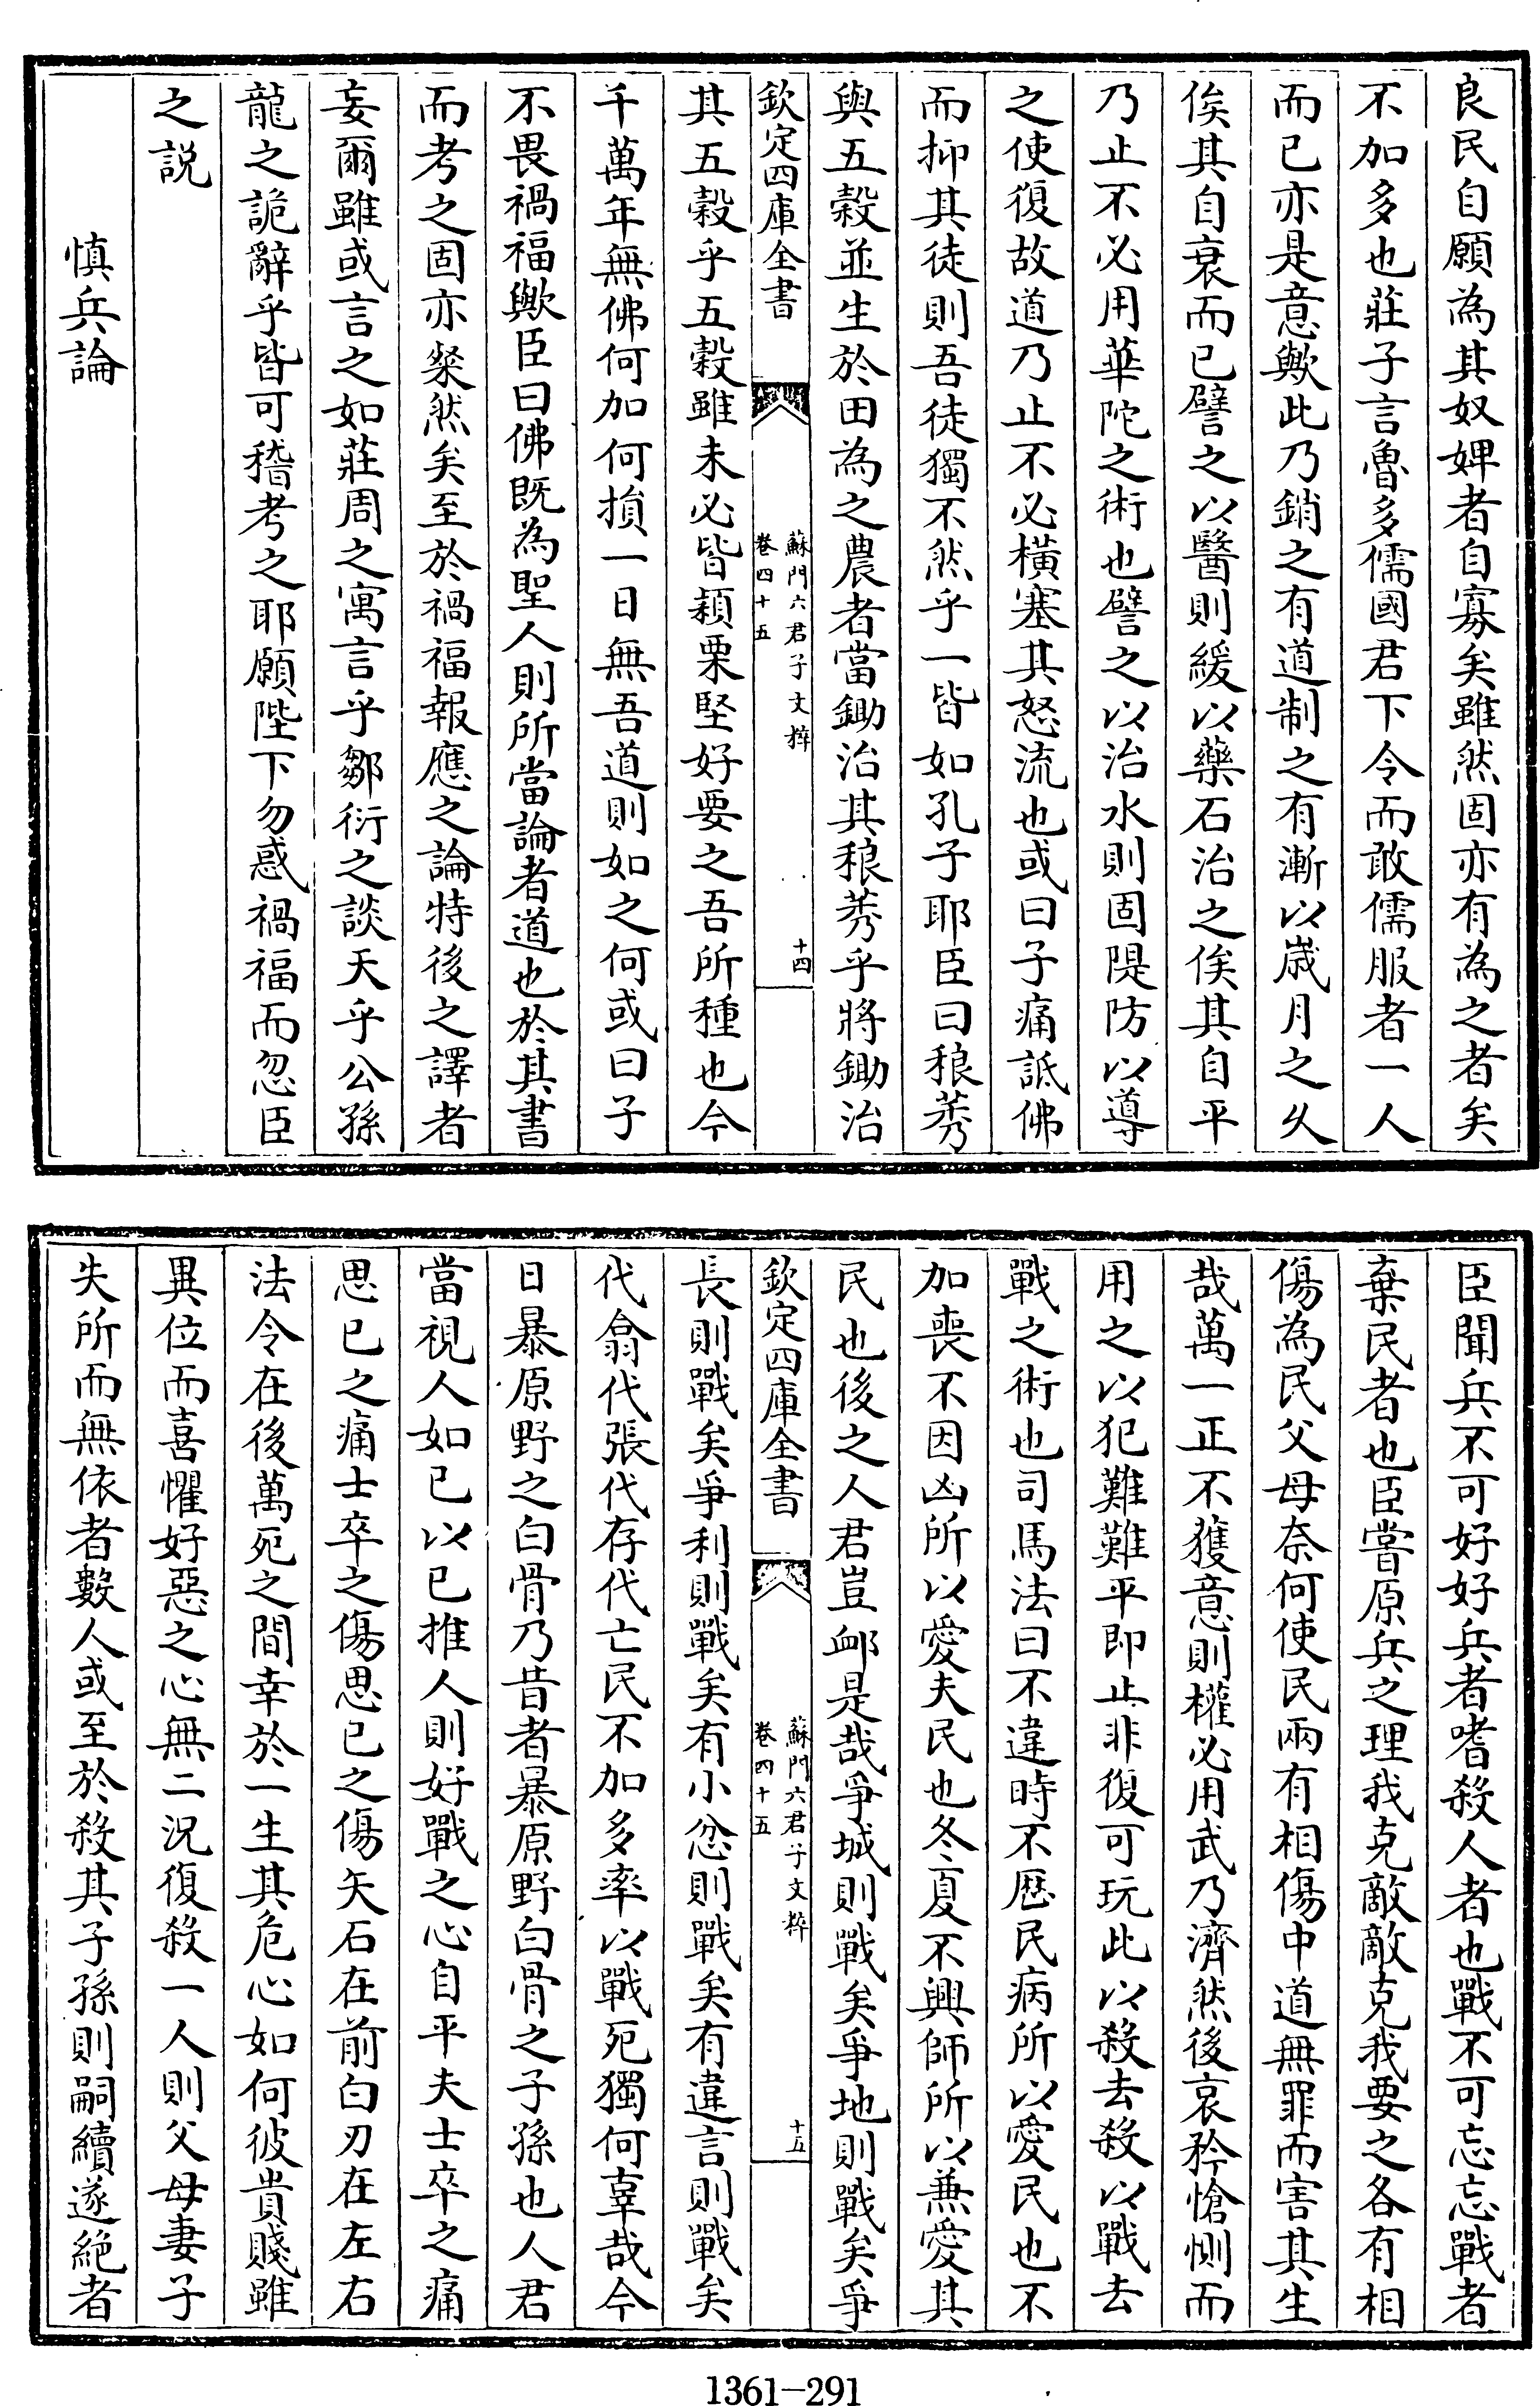 良民自願為其奴婢者自寡矣雖然固亦有為之者矣
不加多也莊子言魯多儒國君下令而敢儒服者一人
而已亦是意歟此乃銷之有道制之有漸以歲月之久
俟其自衰而已譬之以醫則緩以藥石治之俟其自平
乃止不必用華陀之術也譬之以治水則固隄防以導
之使復故道乃止不必橫塞其怒流也或曰子痛詆佛
而抑其徒則吾徒獨不然乎一皆如孔子耶臣曰稂莠
與五穀並生於田為之農者當鋤治其稂莠乎將鋤治
欽定四庫全書
蘇門六君子文粹
卷四十五
十四
其五穀乎五穀雖未必皆穎栗堅好要之吾所種也今
千萬年無佛何加何損一日無吾道則如之何或曰子
不畏禍福歟臣曰佛既為聖人則所當論者道也於其書
而考之固亦粲然矣至於禍福報應之論特後之譯者
妄爾雖或言之如莊周之寓言乎鄒衍之談天乎公孫
龍之詭辭乎皆可稽考之耶願陛下勿惑禍福而忽臣
之說
慎兵論
臣聞兵不可好好兵者嗜殺人者也戰不可忘忘戰者
棄民者也臣嘗原兵之理我克敵敵克我要之各有相
傷為民父母奈何使民兩有相傷中道無罪而害其生
哉萬一正不獲意則權必用武乃濟然後哀矜愴惻而
用之以犯難難平即止非復可玩此以殺去殺以戰去
戰之術也司馬法曰不違時不歷民病所以愛民也不
加喪不因凶所以愛夫民也冬夏不興師所以兼愛其
民也後之人君豈卹是哉爭城則戰矣爭地則戰矣爭
欽定四庫全書
蘇門六君子文粹
卷四十五
十五
長則戰矣爭利則戰矣有小忿則戰矣有違言則戰矣
代翕代張代存代亡民不加多率以戰死獨何辜哉今
日暴原野之白骨乃昔者暴原野白骨之子孫也人君
當視人如己以己推人則好戰之心自平夫士卒之痛
思己之痛士卒之傷思己之傷矢石在前白刃在左右
法令在後萬死之間幸於一生其危心如何彼貴賤雖
異位而喜懼好惡之心無二況復殺一人則父母妻子
失所而無依者數人或至於殺其子孫則嗣續遂絕者
1361-291